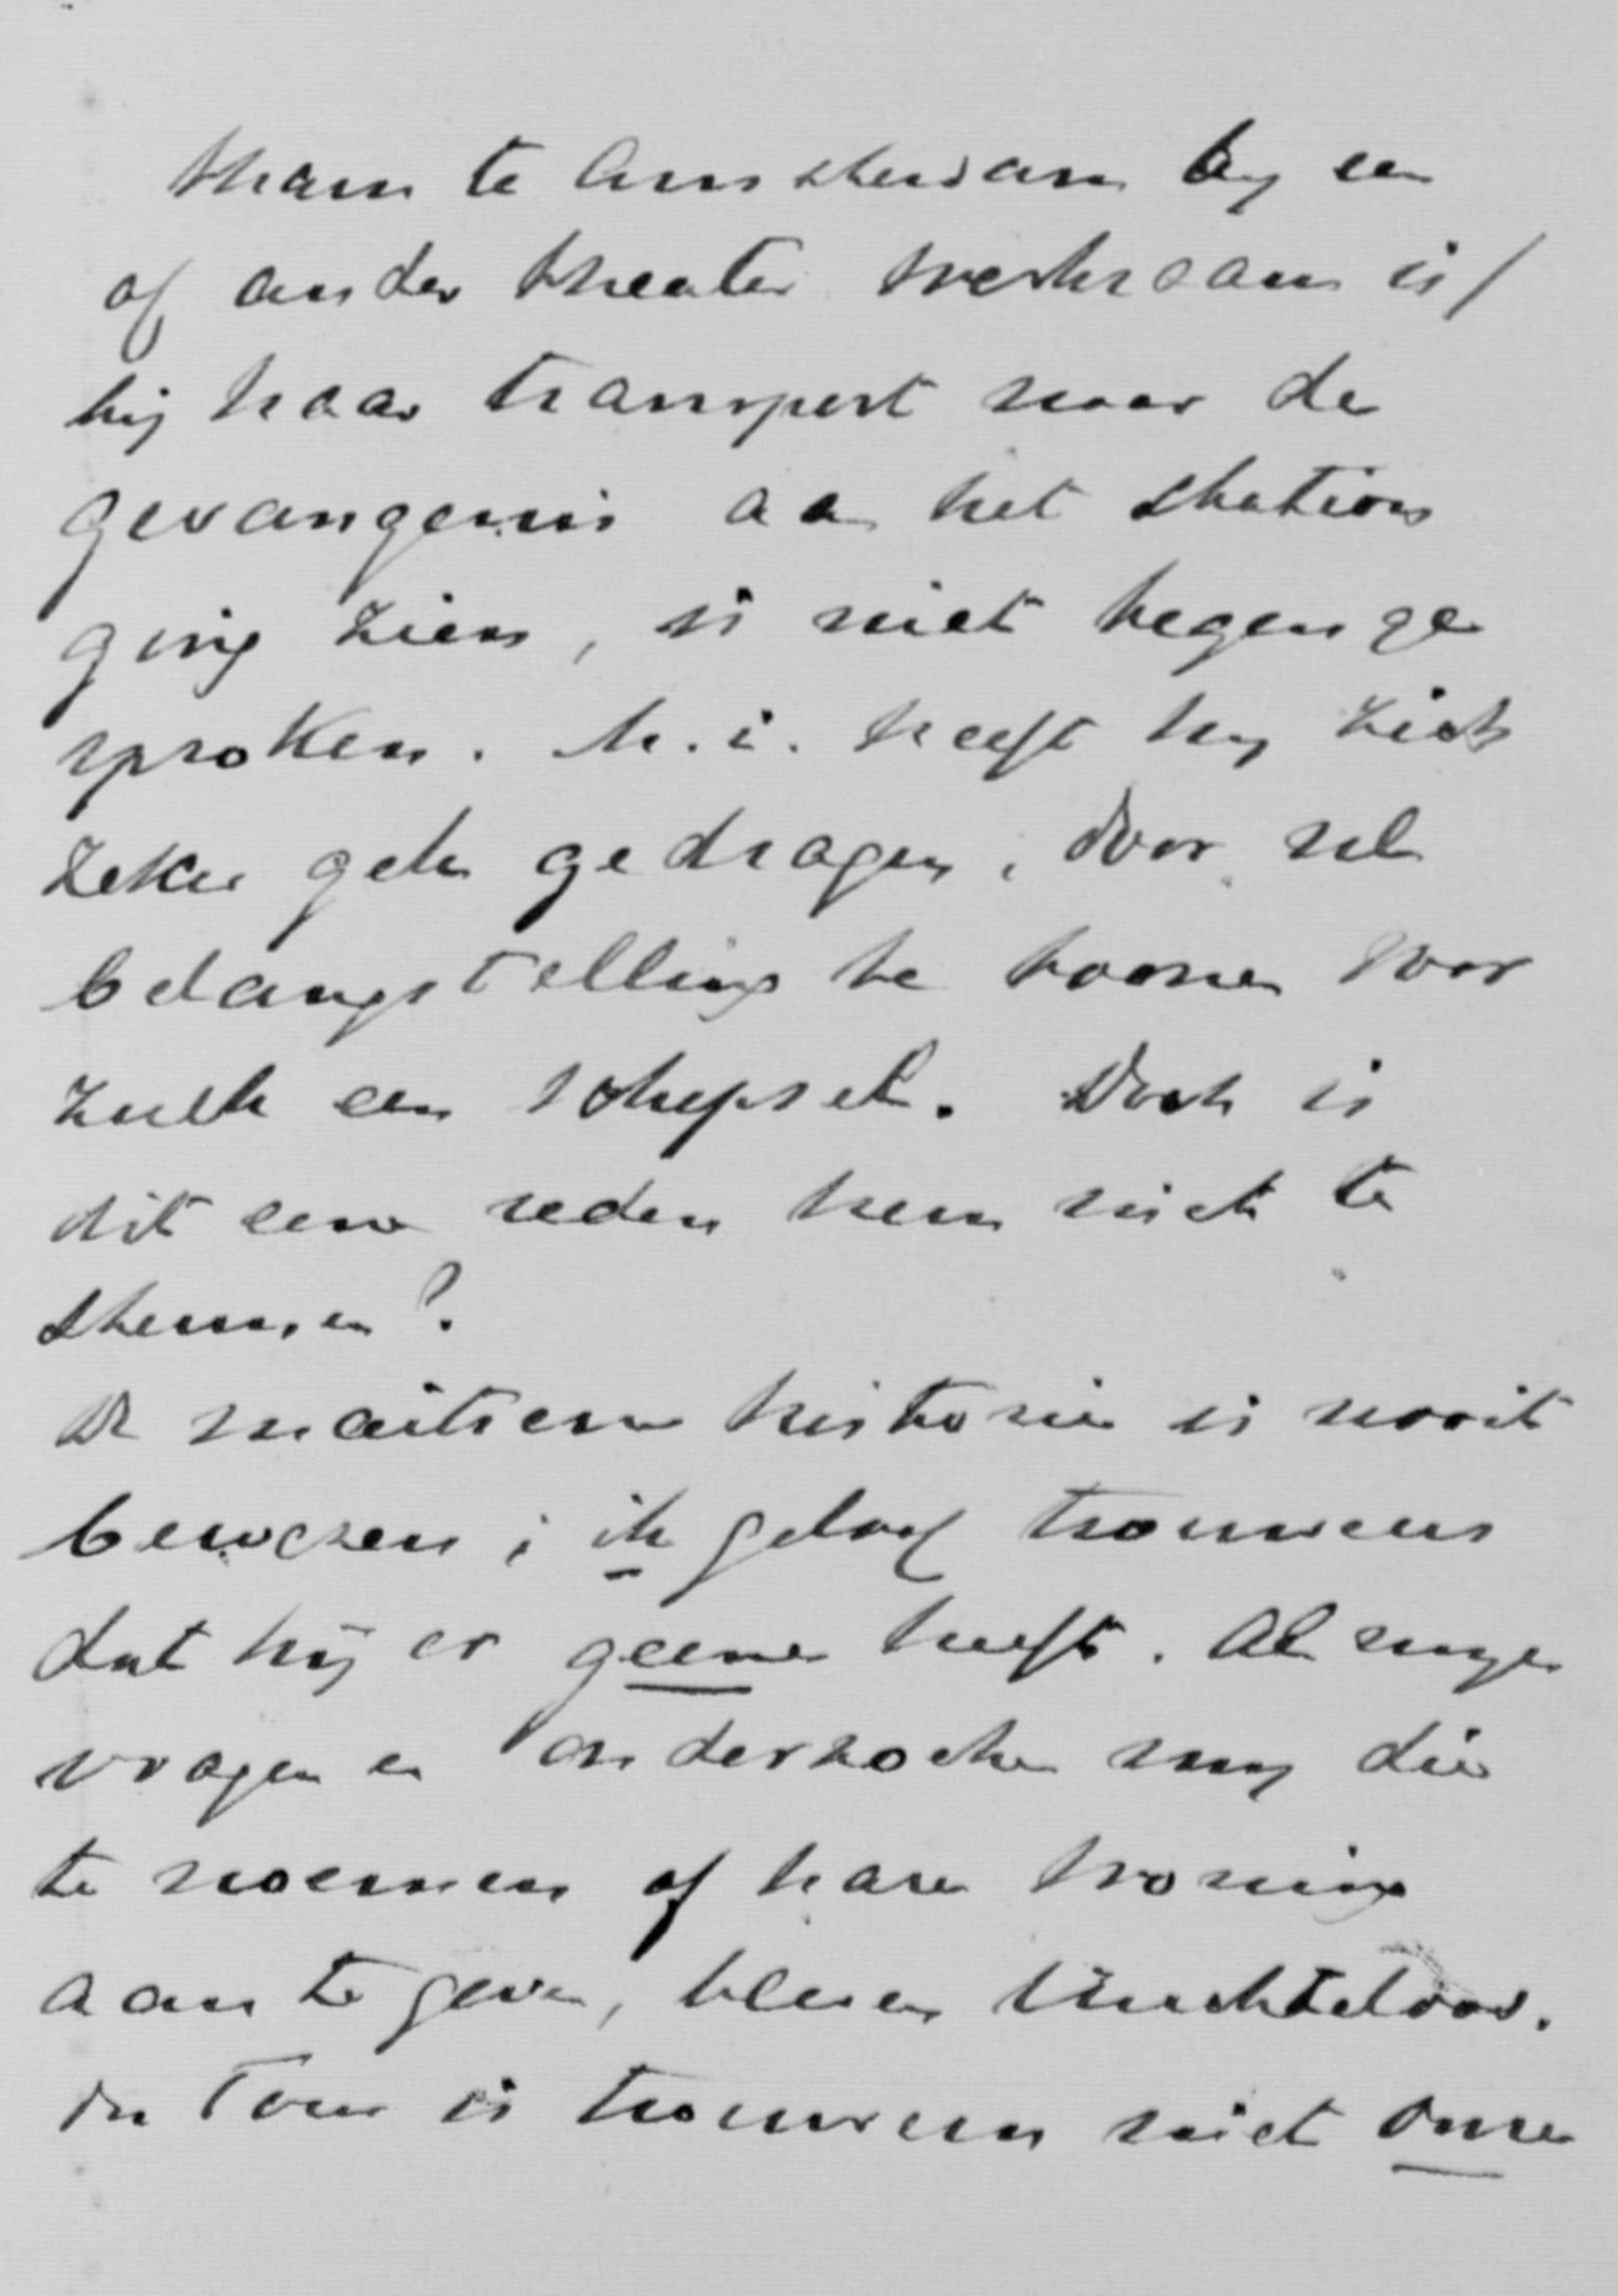 thans te Amsterdam by een
of ander theater werkzaam is/
bij haar transport naar de
gevangenis aan het station
ging zien, is niet tegenge
sproken. M.i. heeft hy zich
zeker gek gedragen, door zel
belangstelling te toonen voor
zulk een schepsel. Doch is
dit eene reden hem niet te
stemmen?
De maitresse historie is nooit
bewezen; ik geloof trouwens
dat hij er geene heeft. Al myne
vragen en onderzoeken my die
te noemen of hare woning
aan te geven, bleven vruchteloos.
du Tour is trouwens niet onze